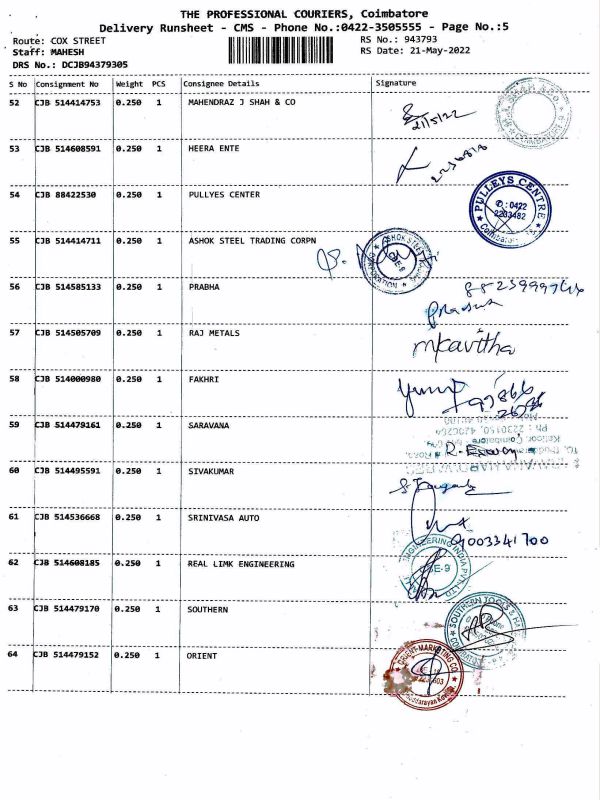 THE PROFESSIONAL COURIERS, Coimbatore
Delivery Runsheet - CMS - Phone No.:0422-3505555 - Page No.:5
Route: COX STREET
RS No.: 943793
Staff: MAHESH
RS Date: 21-May-2022
DRS No.: DCJB94379305
S No Consignment No Weight PCS Consignee Details Signature
52 CJB 514414753 0.250 1 MAHENDRAZ J SHAH & CO
21/5/22
53 CJB 514608591 0.250 1 HEERA ENTE
54 CJB 88422530 0.250 1 PULLYES CENTER
PULLEYS CENTRE
✆:0422
2203482
Coimbatore
55 CJB 514414711 0.250 1 ASHOK STEEL TRADING CORPN
ASHOK STEEL
CORPORATION
56 CJB 514585133 0.250 1 PRABHA
57 CJB 514505709 0.250 1 RAJ METALS
mkavitha
58 CJB 514000980 0.250 1 FAKHRI
59 CJB 514479161 0.250 1 SARAVANA
60 CJB 514495591 0.250 1 SIVAKUMAR
61 CJB 514536668 0.250 1 SRINIVASA AUTO
9003341700
62 CJB 514608185 0.250 1 REAL LIMK ENGINEERING
ENGINEERING INDIA PVT LTD
63 CJB 514479170 0.250 1 SOUTHERN
SOUTHERN TOOLS &
64 CJB 514479152 0.250 1 ORIENT
ORIENT MARKETING CO.